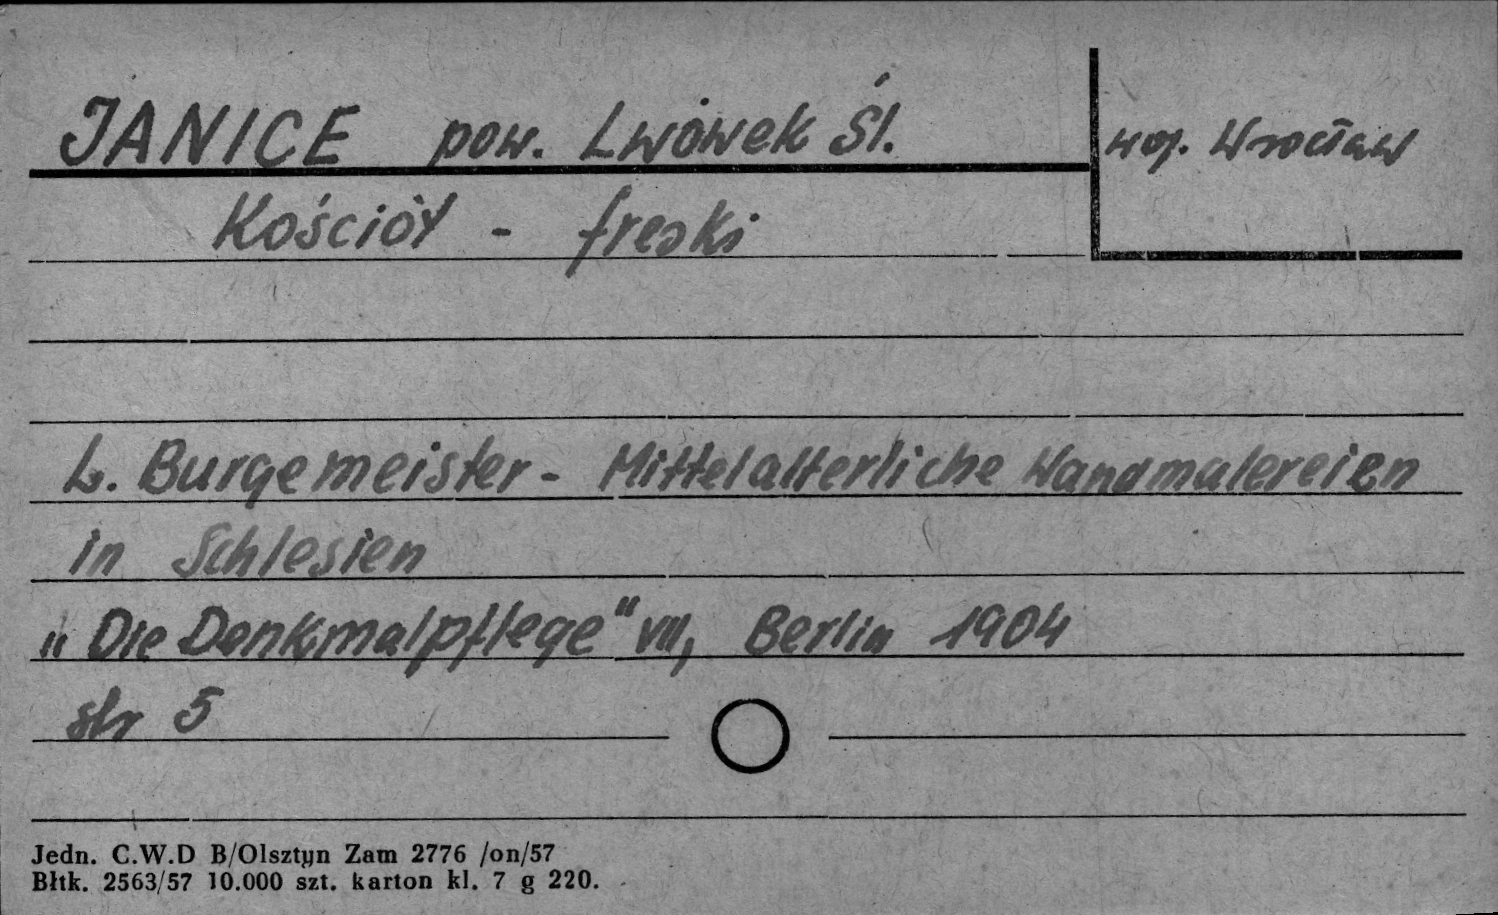 JANICE pow. Lwówek Śl.
woj. Wrocław
Kościół - freski
L. Burgemeister - Mittelalterliche Wandmalereien
in Schlesien
„Die Denkmalpflege" VII, Berlin 1904
str 5
Jedn. C.W.D B/Olsztyn Zam 2776 /on/57
Błtk. 2563/57 10.000 szt. karton kl. 7 g 220.